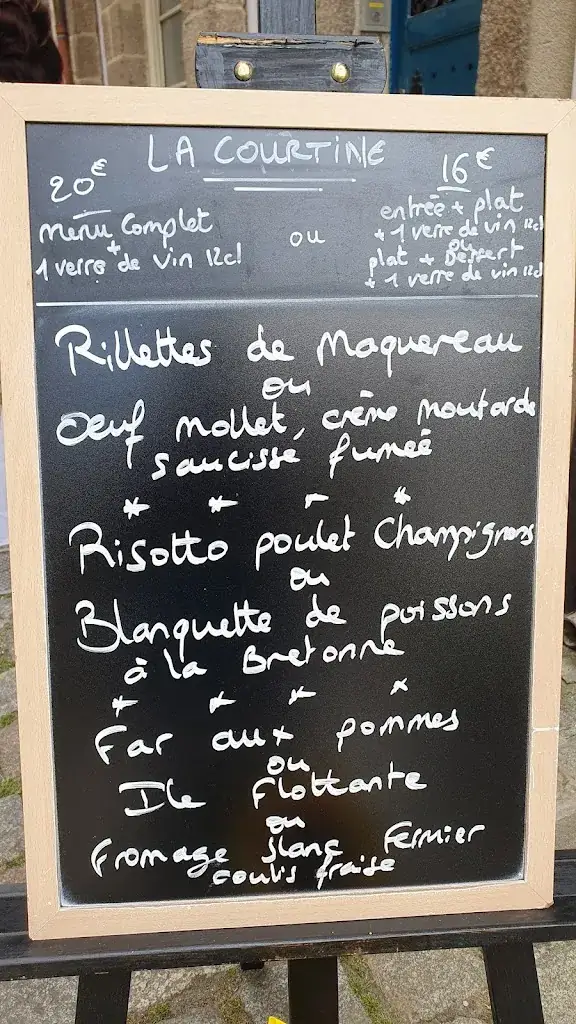 LA COURTINE
20€
Menu Complet
+
1 verre de vin 12cl
ou
16€
entrée + plat
+ 1 verre de vin 12cl
ou
plat + Dessert
+ 1 verre de vin 12cl
Rillettes de Maquereau
ou
Oeuf mollet, crème moutarde
saucisse fumeé
* * * *
Risotto poulet Champignons
ou
Blanquette de poissons
à la Bretonne
* * * *
Far aux pommes
ou
Ile Flottante
ou
Fromage blanc Fermier
coulis fraise